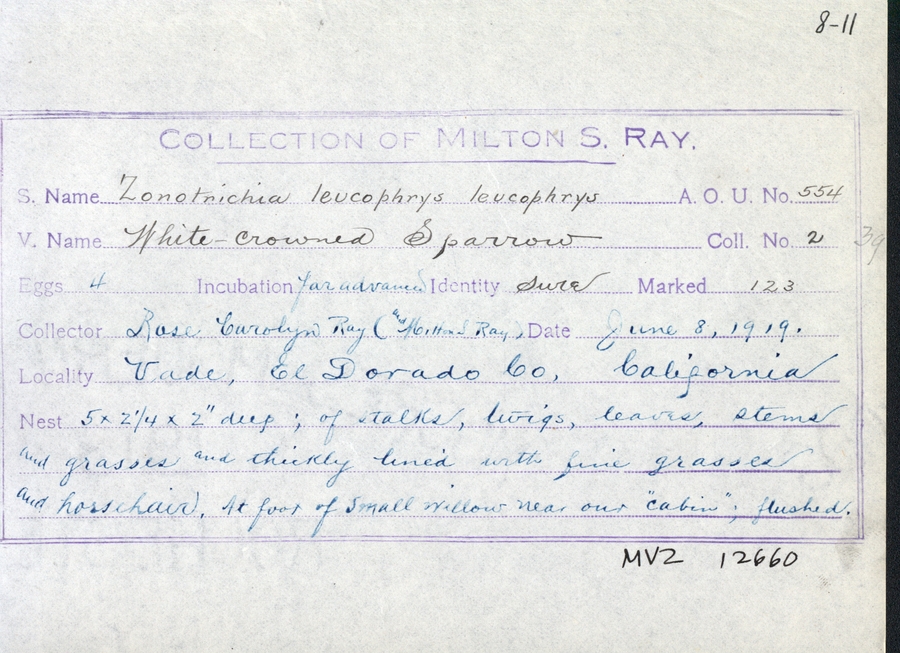 8-11
COLLECTION OF MILTON S. RAY.
S. Name Zonotrichia leucophrys leucophrys A. O. U. No. 554
V. Name White-crowned Sparrow Coll. No. 2 39
Eggs 4 Incubation far advanced Identity sure Marked 123
Collector Rose Carolyn Ray (and Milton S Ray) Date June 8, 1919.
Locality Vade, El Dorado Co, California
Nest 5 x 2 1/4 x 2" deep; of stalks, twigs, leaves, stems
and grasses and thickly lined with fine grasses
and horsehair. At foot of small willow near our "cabin"; flushed.
MVZ 12660